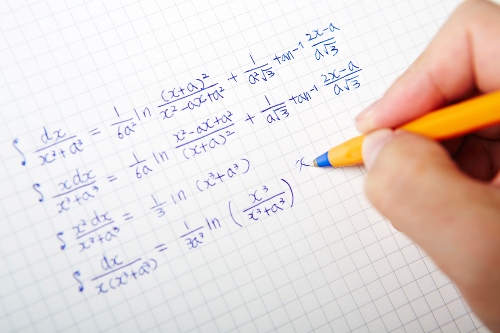 ∫ dx/(x³+a³) = 1/(6a²) ln (x+a)²/(x²-ax+a²) + 1/(a²√3) tan⁻¹ (2x-a)/(a√3)
∫ xdx/(x³+a³) = 1/(6a) ln (x²-ax+a²)/(x+a)² + 1/(a√3) tan⁻¹ (2x-a)/(a√3)
∫ x²dx/(x³+a³) = 1/3 ln (x³+a³)
∫ dx/(x(x³+a³)) = 1/(3a³) ln (x³/(x³+a³)) x